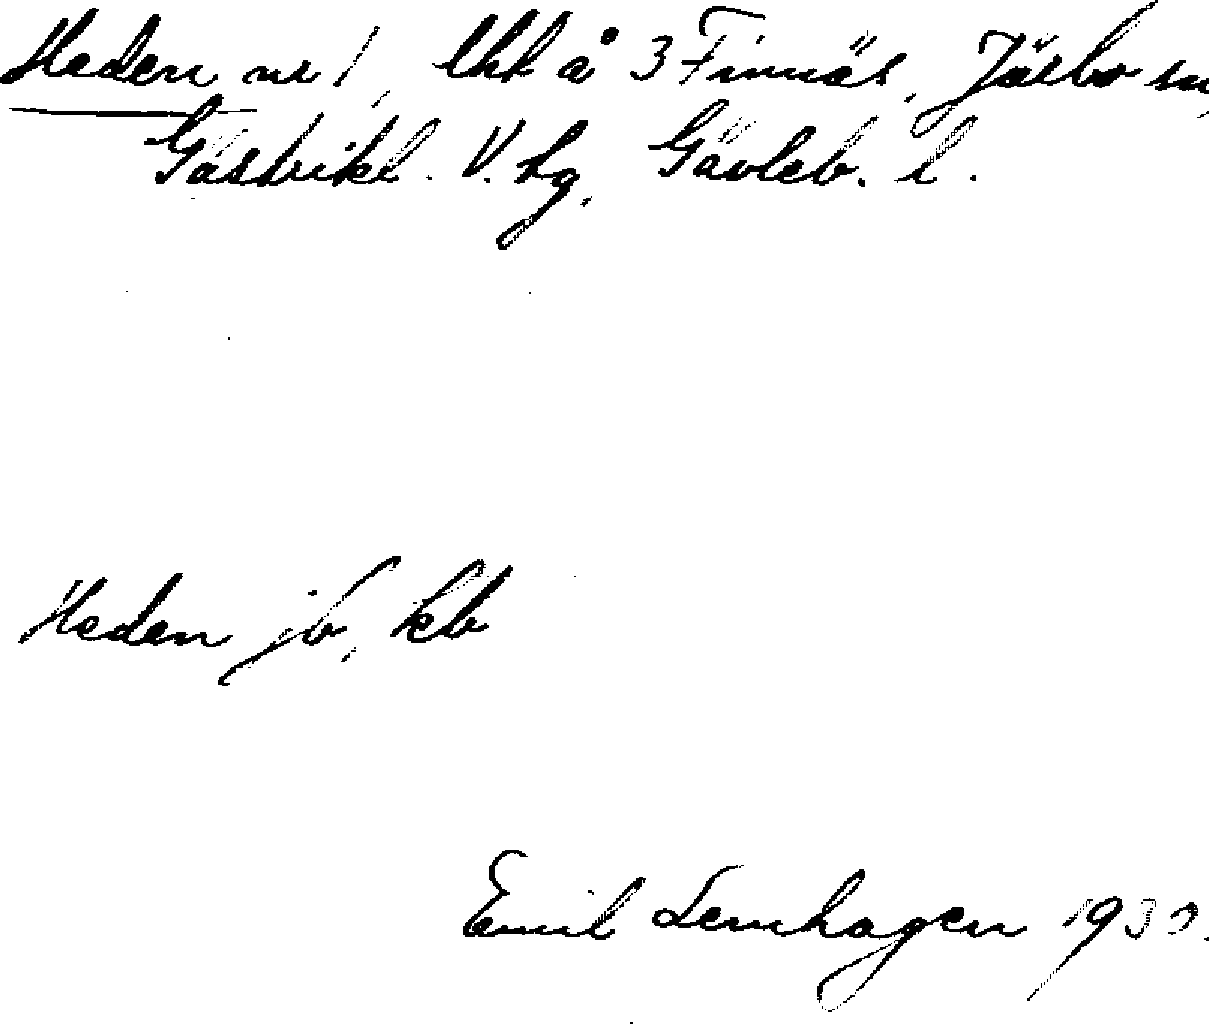 Heden nr 1, lht å 3 Finnäs, Järbo sn,
Gästrikl. V. hg, Gävleb. l.
Heden jb, kb
Emil Lernhagen 1930.